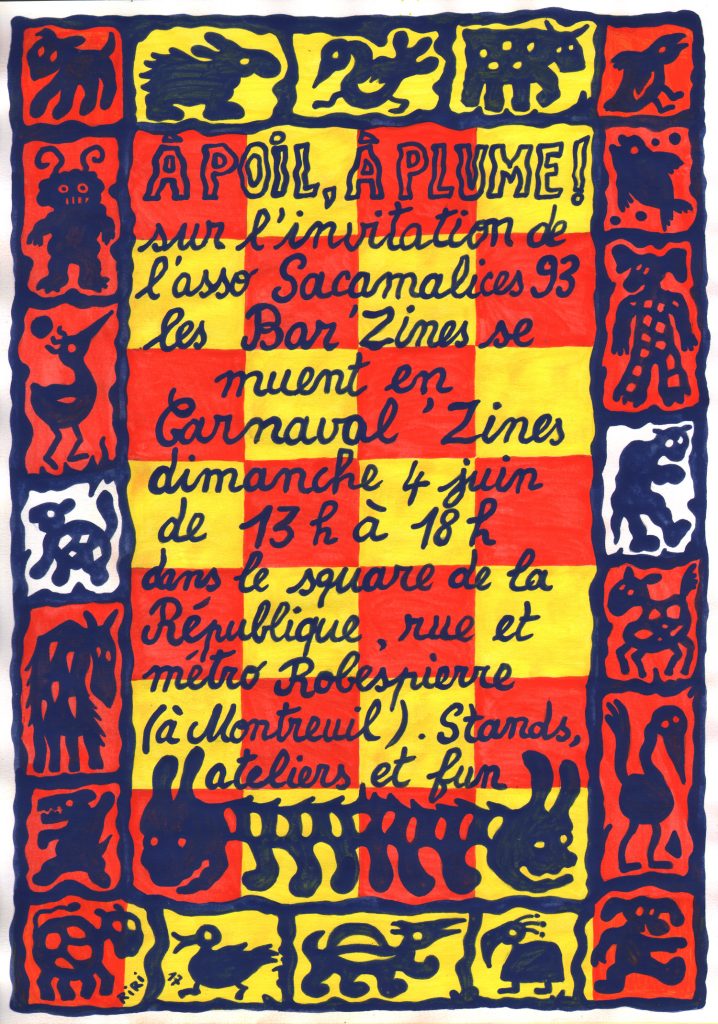 À POIL, À PLUME!
sur l'invitation de
l'asso Sacamalices 93
les Bar'Zines se
muent en
Carnaval'Zines
dimanche 4 juin
de 13h à 18h
dans le square de la
République, rue et
métro Robespierre
(à Montreuil). Stands,
ateliers et fun
RiRi 17